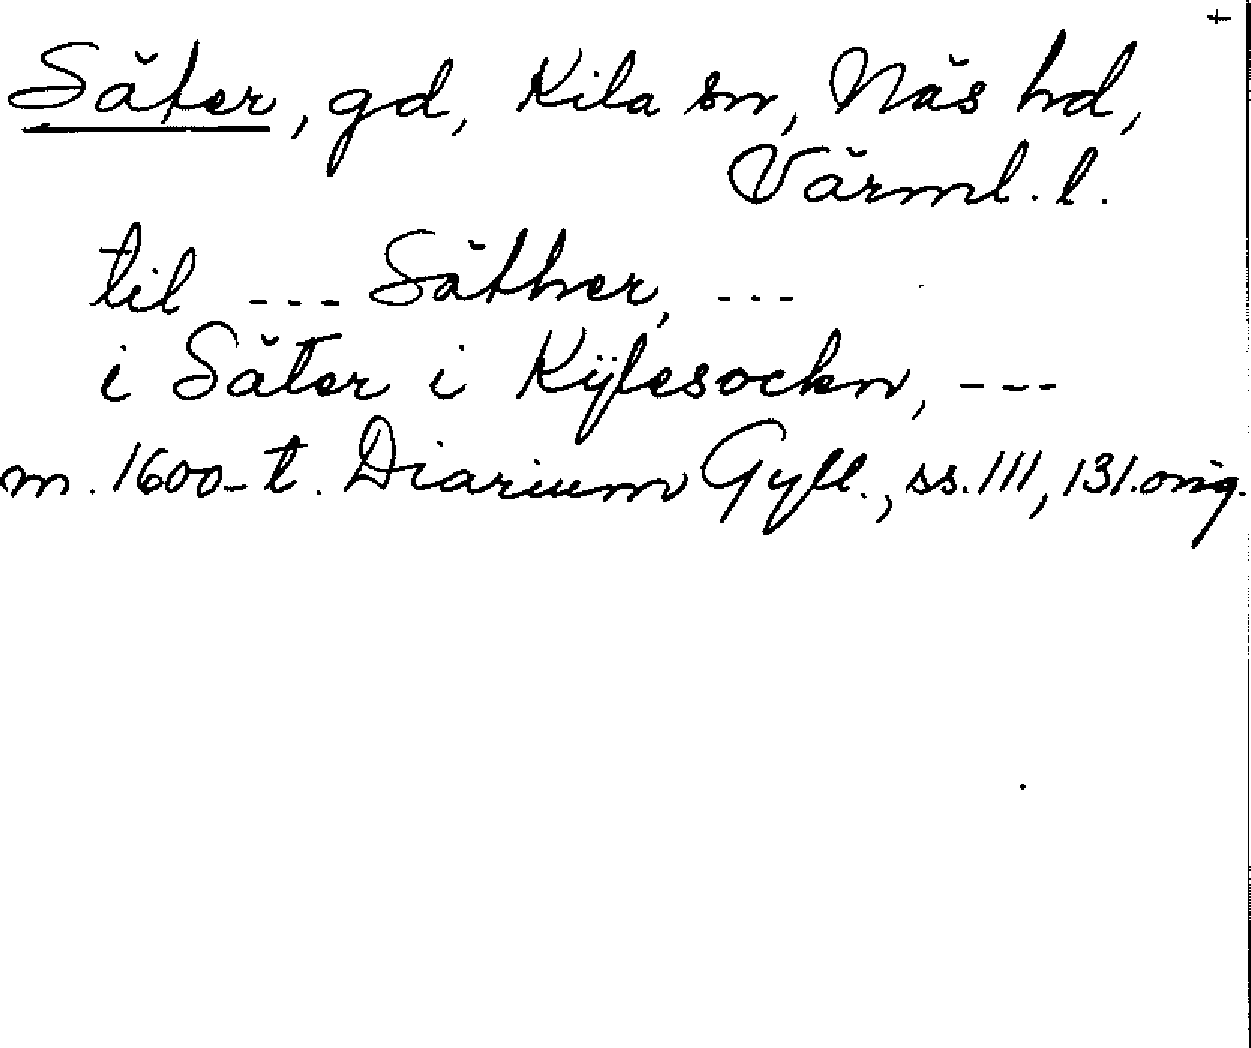 Säter, gd, Kila sn, Näs hd,
Värml. l.
til --- Säther, ---
i Säter i Kÿlesockn, ---
m. 1600-t. Diarium Gyll., ss. 111, 131. orig.